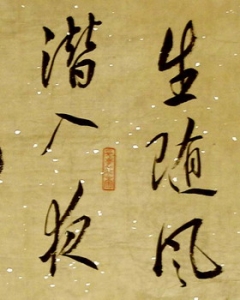 生随风
潜入夜